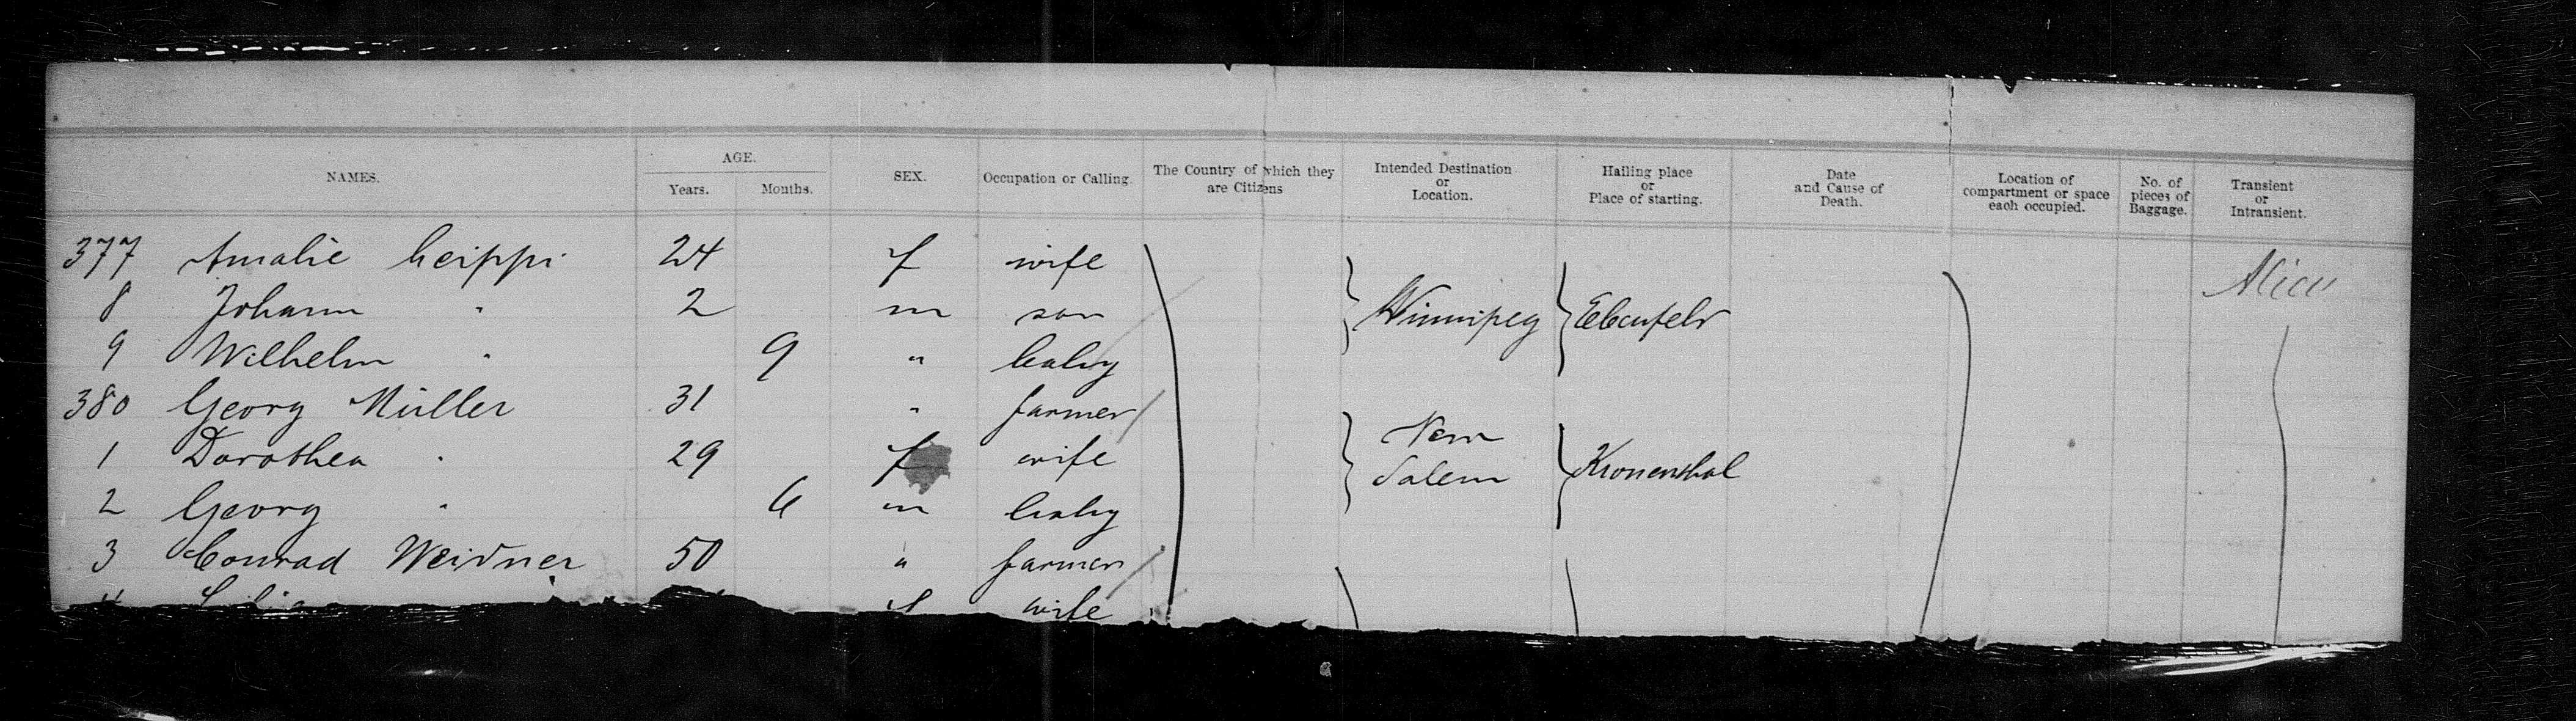 NAMES. AGE. Years. Months. SEX. Occupation or Calling. The Country of which they are Citizens Intended Destination or Location. Hailing place or Place of starting. Date and Cause of Death. Location of compartment or space each occupied. No. of pieces of Baggage. Transient or Intransient.
377 Amalie heippi 24 f wife
8 Johann " 2 m son Winnipeg Ebenfeld
9 Wilhelm " 9 " baby
380 Georg Müller 31 " farmer
1 Dorothea " 29 f wife New Salem Kronenthal
2 Georg " 6 m baby
3 Conrad Weidner 50 " farmer
f wife